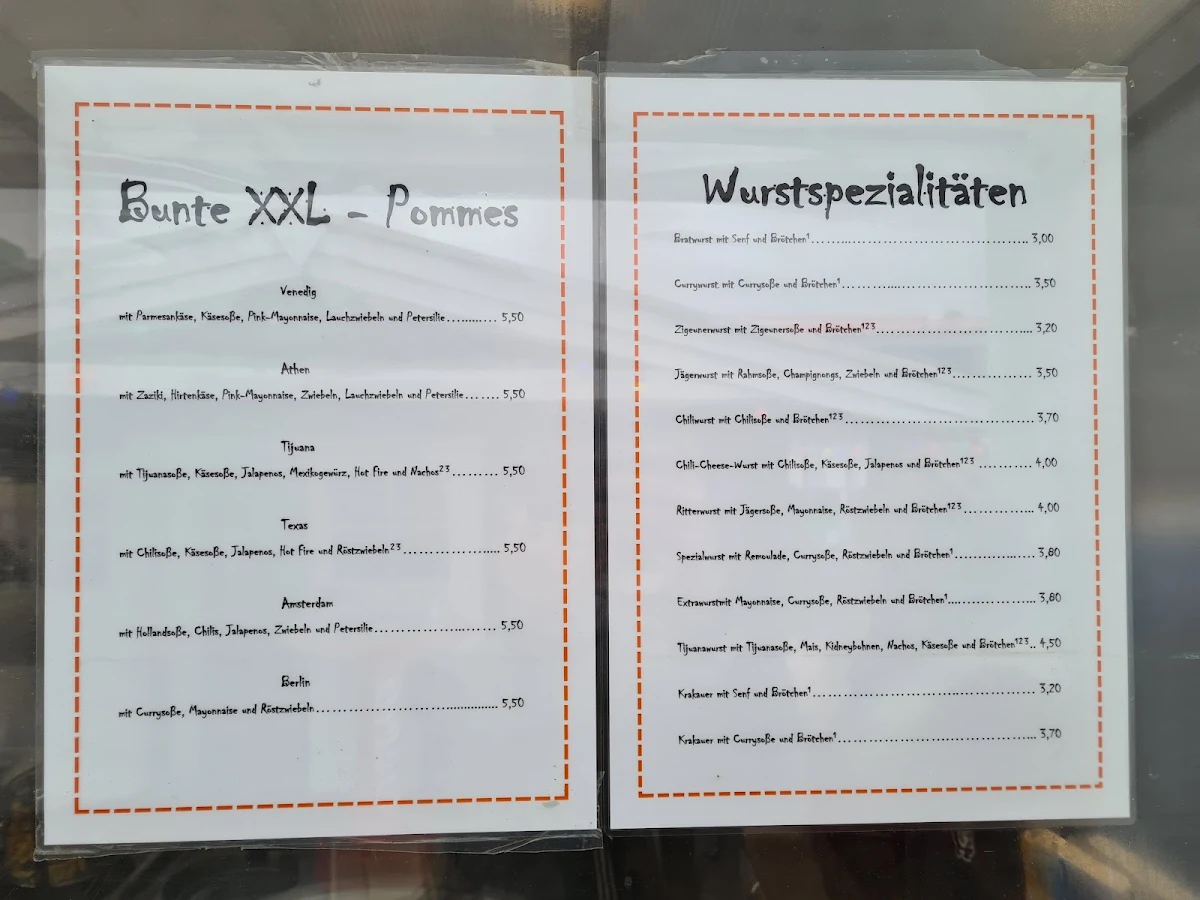 Bunte XXL - Pommes
Venedig
mit Parmesankäse, Käsesoße, Pink-Mayonnaise, Lauchzwiebeln und Petersilie.......... 5,50
Athen
mit Zaziki, Hirtenkäse, Pink-Mayonnaise, Zwiebeln, Lauchzwiebeln und Petersilie....... 5,50
Tijuana
mit Tijuanasoße, Käsesoße, Jalapenos, Mexikogewürz, Hot Fire und Nachos²³......... 5,50
Texas
mit Chilisoße, Käsesoße, Jalapenos, Hot Fire und Röstzwiebeln²³................... 5,50
Amsterdam
mit Hollandsoße, Chilis, Jalapenos, Zwiebeln und Petersilie........................ 5,50
Berlin
mit Currysoße, Mayonnaise und Röstzwiebeln................................... 5,50
Wurstspezialitäten
Bratwurst mit Senf und Brötchen¹........................................ 3,00
Currywurst mit Currysoße und Brötchen¹.................................. 3,50
Zigeunerwurst mit Zigeunersoße und Brötchen¹²³............................ 3,20
Jägerwurst mit Rahmsoße, Champignongs, Zwiebeln und Brötchen¹²³.............. 3,50
Chiliwurst mit Chilisoße und Brötchen¹²³.................................. 3,70
Chili-Cheese-Wurst mit Chilisoße, Käsesoße, Jalapenos und Brötchen¹²³.......... 4,00
Ritterwurst mit Jägersoße, Mayonnaise, Röstzwiebeln und Brötchen¹²³............. 4,00
Spezialwurst mit Remoulade, Currysoße, Röstzwiebeln und Brötchen¹............... 3,80
Extrawurstmit Mayonnaise, Currysoße, Röstzwiebeln und Brötchen¹................ 3,80
Tijuanawurst mit Tijuanasoße, Mais, Kidneybohnen, Nachos, Käsesoße und Brötchen¹²³.. 4,50
Krakauer mit Senf und Brötchen¹........................................ 3,20
Krakauer mit Currysoße und Brötchen¹................................... 3,70